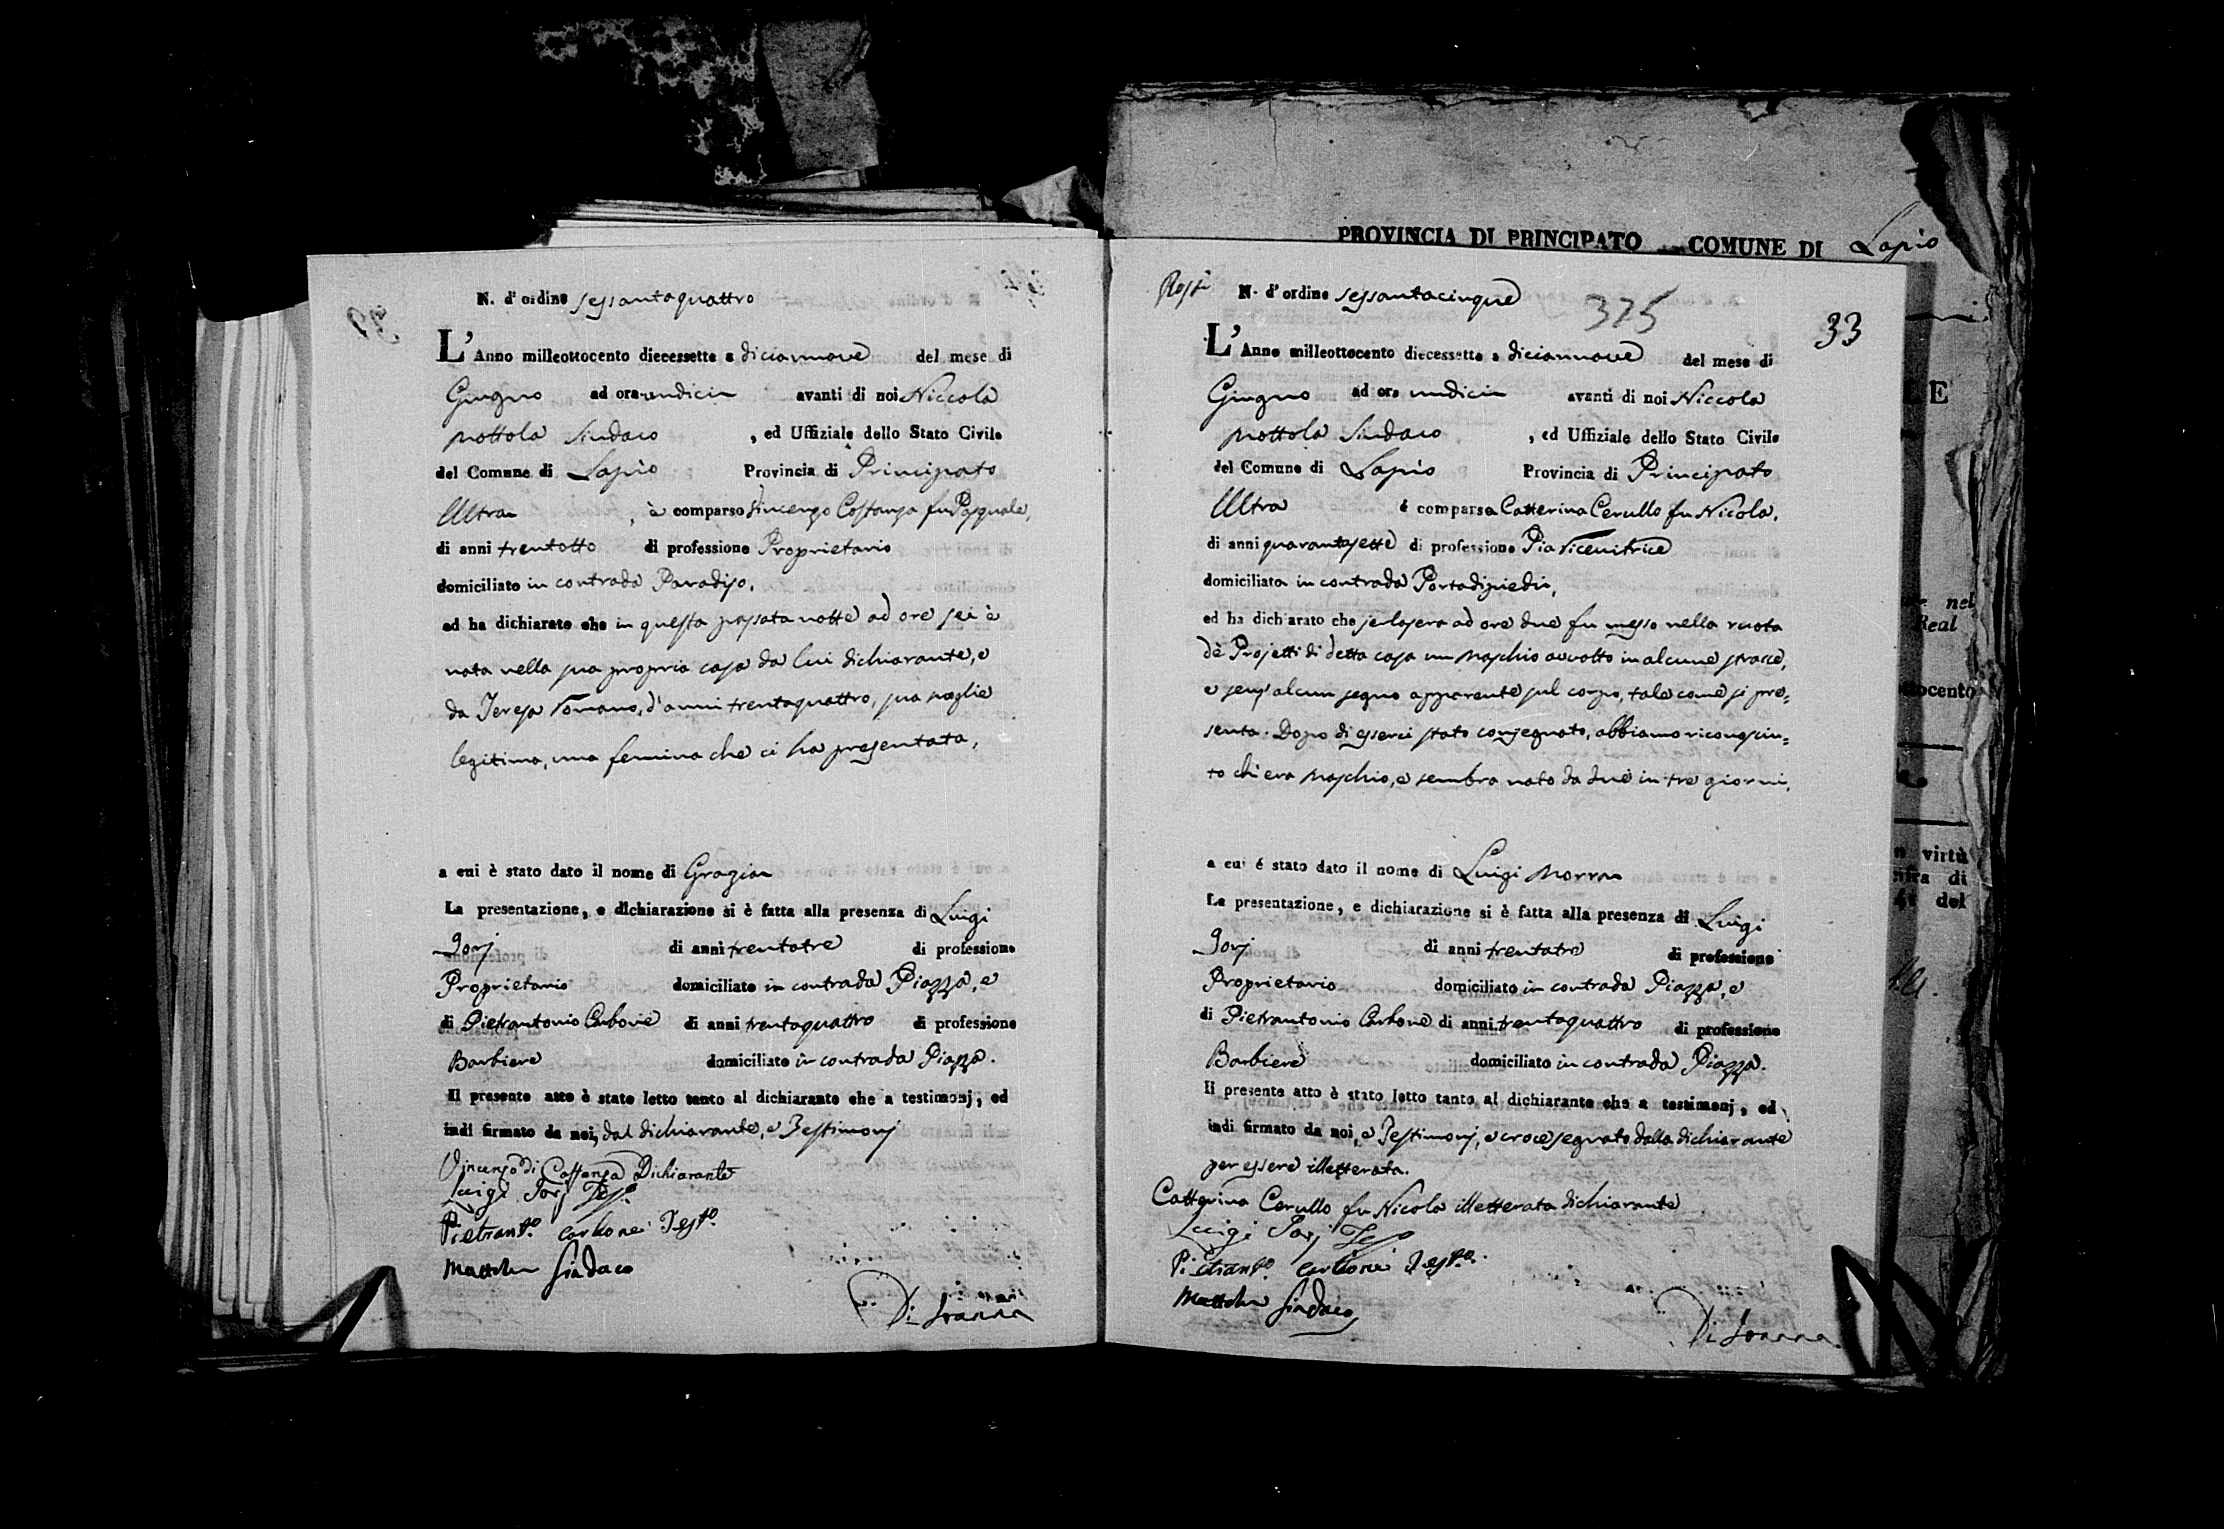 PROVINCIA DI PRINCIPATO COMUNE DI Lapio
N. d'ordine sessantaquattro
L'Anno milleottocento diecessette a diciannove del mese di
Giugno ad ore undici avanti di noi Niccola
Mottola Sindaco , ed Uffiziale dello Stato Civile
del Comune di Lapio Provincia di Principato
Ultra , è comparso Vincenzo Costanza fu Pasquale,
di anni trentotto di professione Proprietario
domiciliato in contrada Paradiso,
ed ha dichiarato che in questa passata notte ad ore sei è
nata nella sua propria casa da lui dichiarante, e
da Teresa Romano, d'anni trentaquattro, sua moglie
legitima, una femina che ci ha presentata,
a cui è stato dato il nome di Grazia
La presentazione, e dichiarazione si è fatta alla presenza di Luigi
di anni trentatre di professione
Proprietario domiciliato in contrada Piazza, e
di Pietrantonio Carbone di anni trentaquattro di professione
Barbiere domiciliato in contrada Piazza.
Il presente atto è stato letto tanto al dichiarante che a testimonj, ed
indi firmato da noi, dal dichiarante, e Testimonj
Vincenzo di Costanza Dichiarante
Luigi
Pietrant.o Carbone Test.o
Mottola Sindaco
Di Ioanna
Resti N. d'ordine sessantacinque
375
33
L'Anno milleottocento diecessette a diciannove del mese di
Giugno ad ore undici avanti di noi Niccola
Mottola Sindaco , ed Uffiziale dello Stato Civile
del Comune di Lapio Provincia di Principato
Ultra é comparsa Catterina Cerullo fu Nicola,
di anni quarantasette di professione Pia ricevitrice
domiciliata in contrada Portadipiedi,
ed ha dichiarato che jerlasera ad ore due fu messo nella ruota
de' Projetti di detta casa un maschio avvolto in alcune stracce,
e senz'alcun segno apparente sul corpo, tale come si pre=
senta. Dopo di esserci stato consegnato, abbiamo riconosciu=
to ch'era maschio, e sembra nato da due in tre giorni,
a cui é stato dato il nome di Luigi Morra
La presentazione, e dichiarazione si è fatta alla presenza di Luigi
di anni trentatre di professione
Proprietario domiciliato in contrada Piazza, e
di Pietrantonio Carbone di anni trentaquattro di professione
Barbiere domiciliato in contrada Piazza.
Il presente atto è stato letto tanto al dichiarante che a testimonj, ed
indi firmato da noi, e Testimonj, e crocesegnato dalla dichiarante
per essere illetterata.
Catterina Cerullo fu Nicola illetterata dichiarante
Luigi
Pietrant.o Carbone Test.o
Mottola Sindaco
Di Ioanna
E
nel
Real
ttocento
virtù
di
del